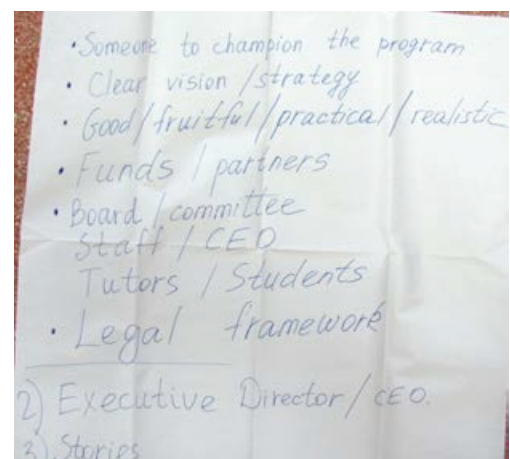 • Someone to champion the program
• Clear vision / strategy
• Good / fruitful / practical / realistic
• Funds / partners
• Board / committee
Staff / CEO
Tutors / Students
• Legal framework
2) Executive Director / CEO.
3) Stories